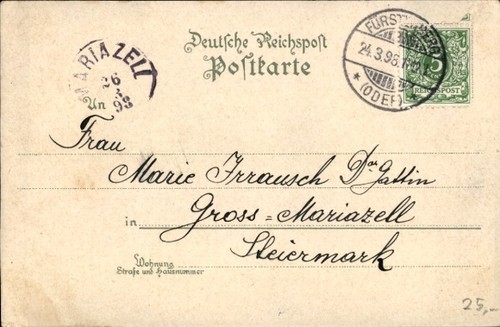 Deutsche Reichspost
Postkarte
FÜRSTENBERG
24.3.98.
* (ODER) *
5
REICHSPOST
MARIAZELL
26
3
98
An
Frau
Marie Irrausch Dor Gattin
in Gross-Mariazell
Steiermark
Wohnung
Straße und Hausnummer
25,-